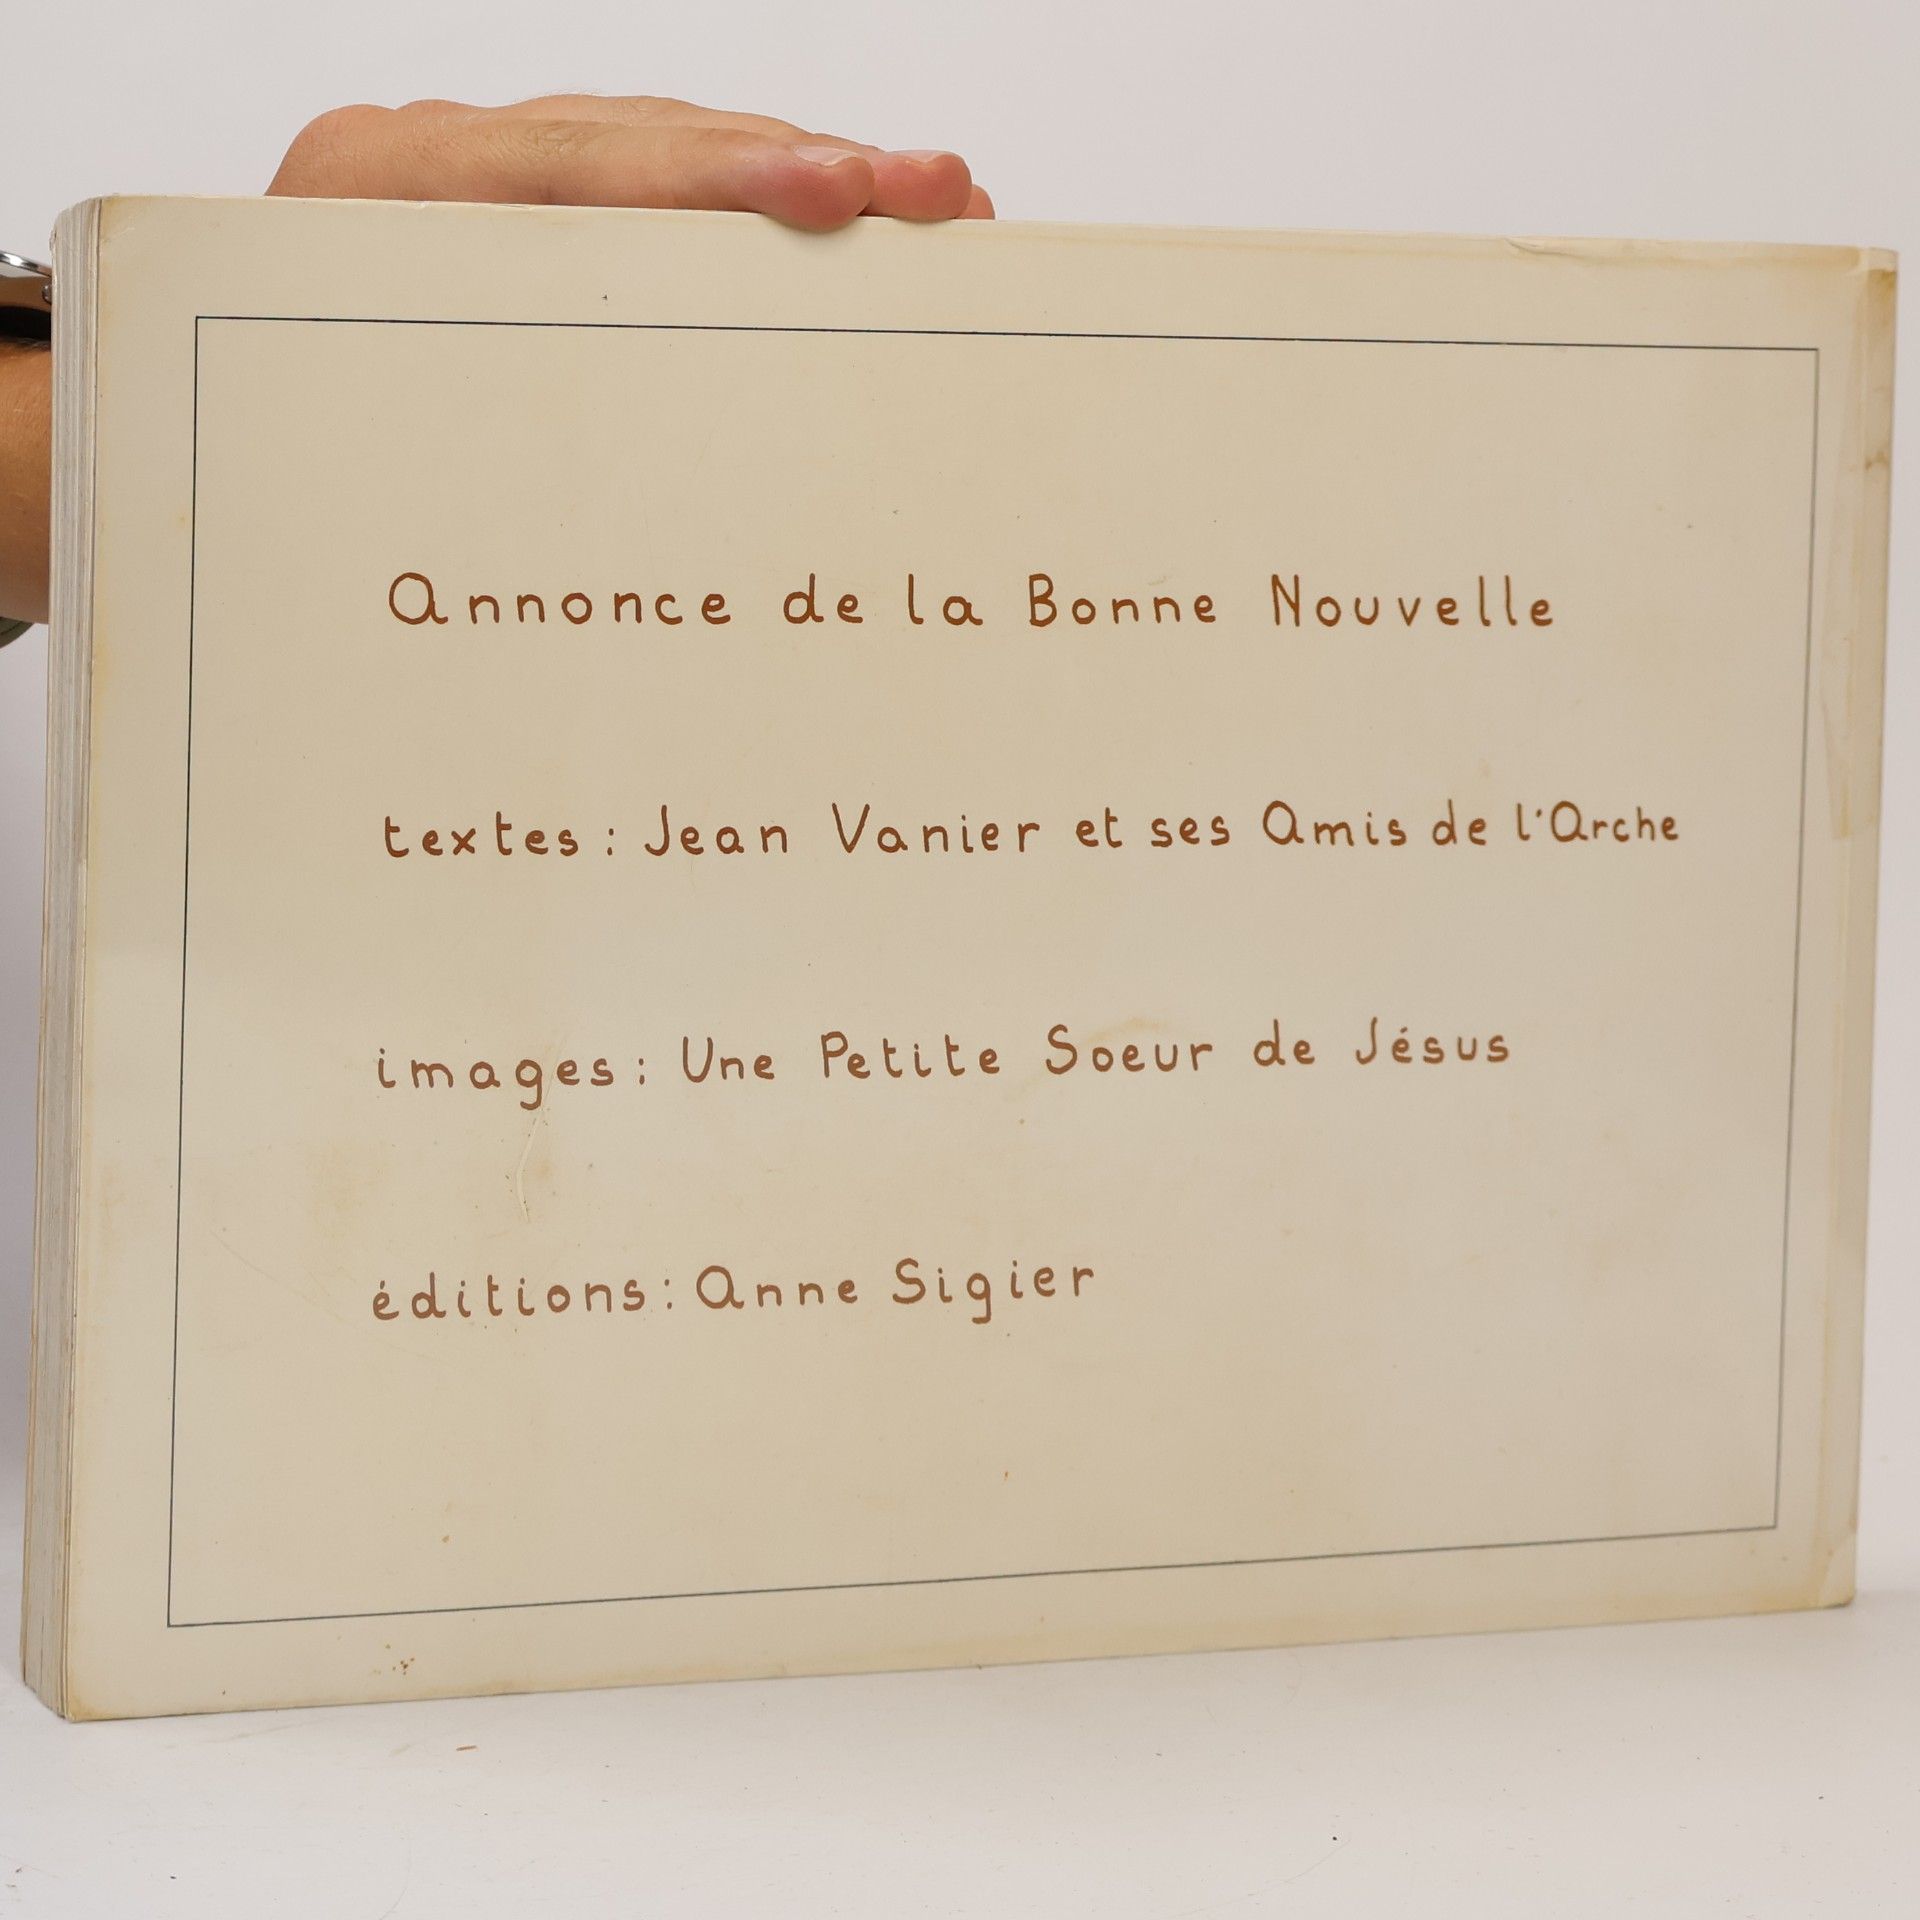 Annonce de la Bonne Nouvelle
textes : Jean Vanier et ses Amis de l'Arche
images : Une Petite Soeur de Jésus
éditions : Anne Sigier